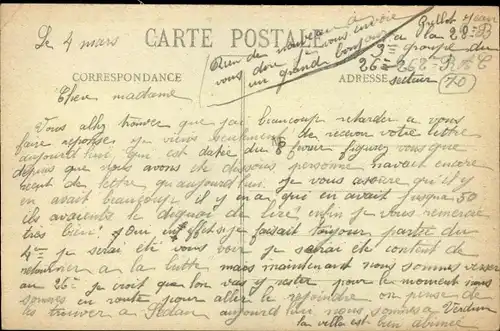 Le 4 mars
CARTE POSTALE
Rien de nouveau à
vous dire je vous envoie
un grand bonjour
Grillot Jean
a la 28e B
3me groupe du
26e 262e R A C
secteur (70)
CORRESPONDANCE
ADRESSE
Cher madame
Vous allez trouver que j'ai beaucoup retarder a vous
faire reponse je viens seulement de recevoir votre lettre
aujourd'hui qui est datée du 6 fevrier figurez vous que
depuis que nous avons été dessous personne n'avait encore
recut de lettre qu'aujourd'hui. Je vous assure qu'il y
en avait beaucoup il y en a qui en avait jusqua 50
ils avaients le de quoi de lire enfin je vous remercie
très bien. Oui si je faisait toujour partie du
4me je serai été vous voir je serai été content de
retourner a la butte mais maintenant nous sommes verser
au 26e je croit que l'on vas y rester pour le moment nous
sommes en route pour aller le rejoindre on pense de
les trouver a Sedan aujourd'hui nous sommes a Verdun
la ville est bien abimée